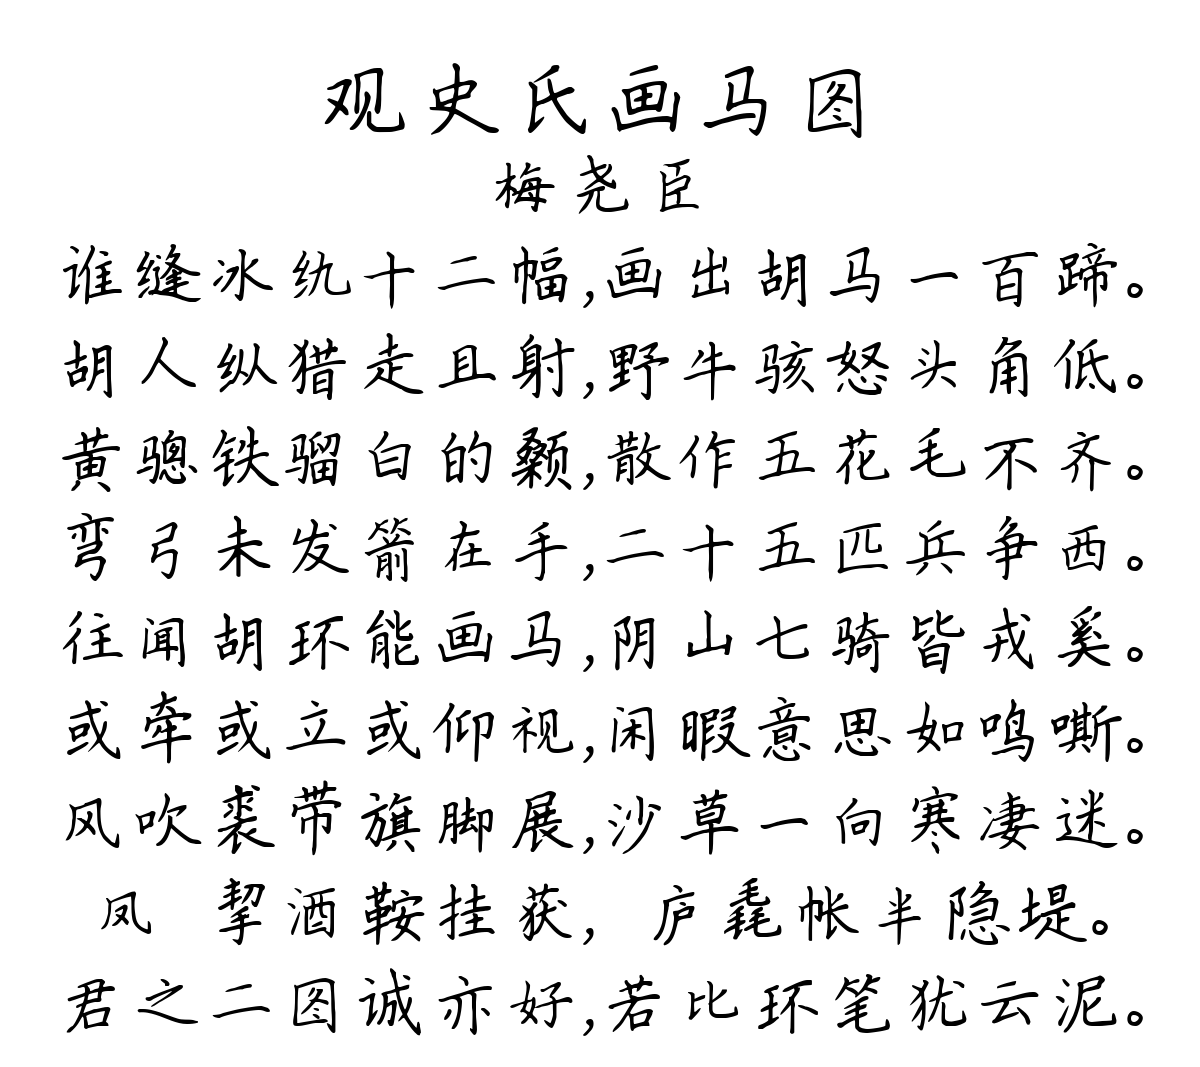 观史氏画马图
梅尧臣
谁缝冰纨十二幅,画出胡马一百蹄。
胡人纵猎走且射,野牛骇怒头角低。
黄骢铁骝白的颡,散作五花毛不齐。
弯弓未发箭在手,二十五匹兵争西。
往闻胡环能画马,阴山七骑皆戎奚。
或牵或立或仰视,闲暇意思如鸣嘶。
风吹裘带旗脚展,沙草一向寒凄迷。
凤 挈酒鞍挂获, 庐毳帐半隐堤。
君之二图诚亦好,若比环笔犹云泥。